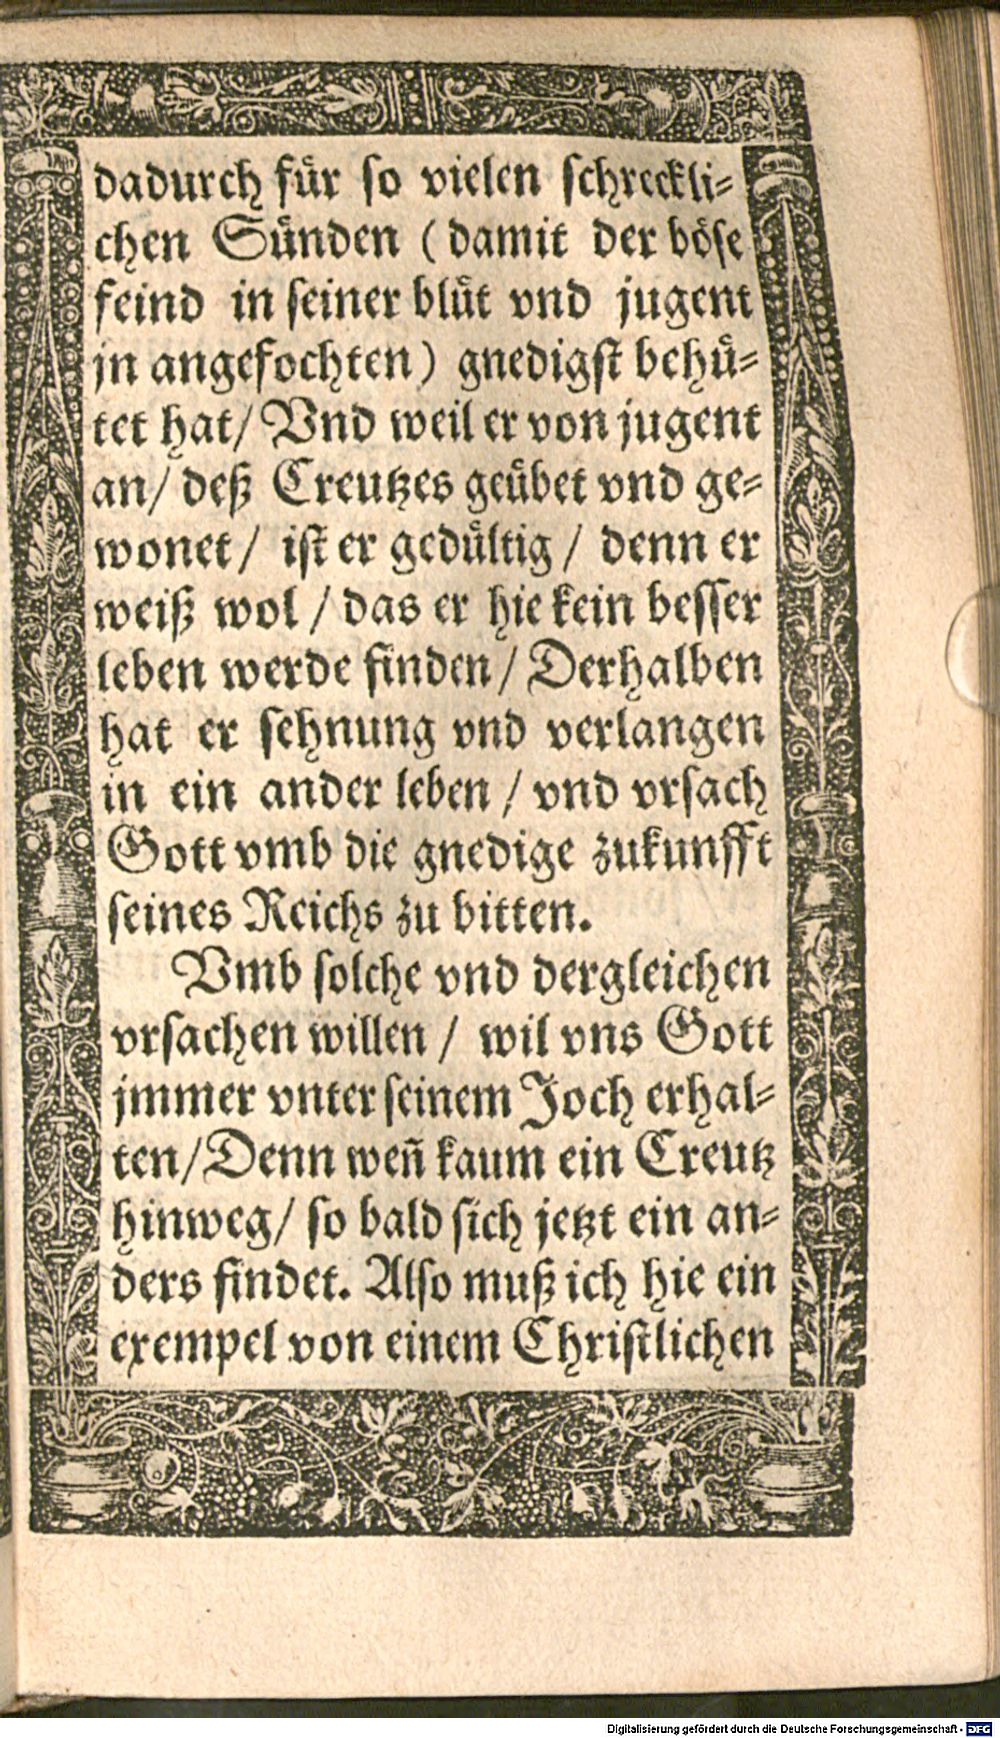 dadurch fuͤr so vielen schreckli-
chen Suͤnden (damit der boͤse
feind in seiner bluͤt vnd jugent
jn angefochten) gnedigst behuͤ-
tet hat/ Vnd weil er von jugent
an/ deß Creutzes geuͤbet vnd ge-
wonet/ ist er geduͤltig/ denn er
weiß wol/ das er hie kein besser
leben werde finden/ Derhalben
hat er sehnung vnd verlangen
in ein ander leben/ vnd vrsach
Gott vmb die gnedige zukunfft
seines Reichs zu bitten.
Vmb solche vnd dergleichen
vrsachen willen/ wil vns Gott
jmmer vnter seinem Joch erhal-
ten/ Denn weñ kaum ein Creutz
hinweg/ so bald sich jetzt ein an-
ders findet. Also muß ich hie ein
exempel von einem Christlichen
Digitalisierung gefördert durch die Deutsche Forschungsgemeinschaft - DFG